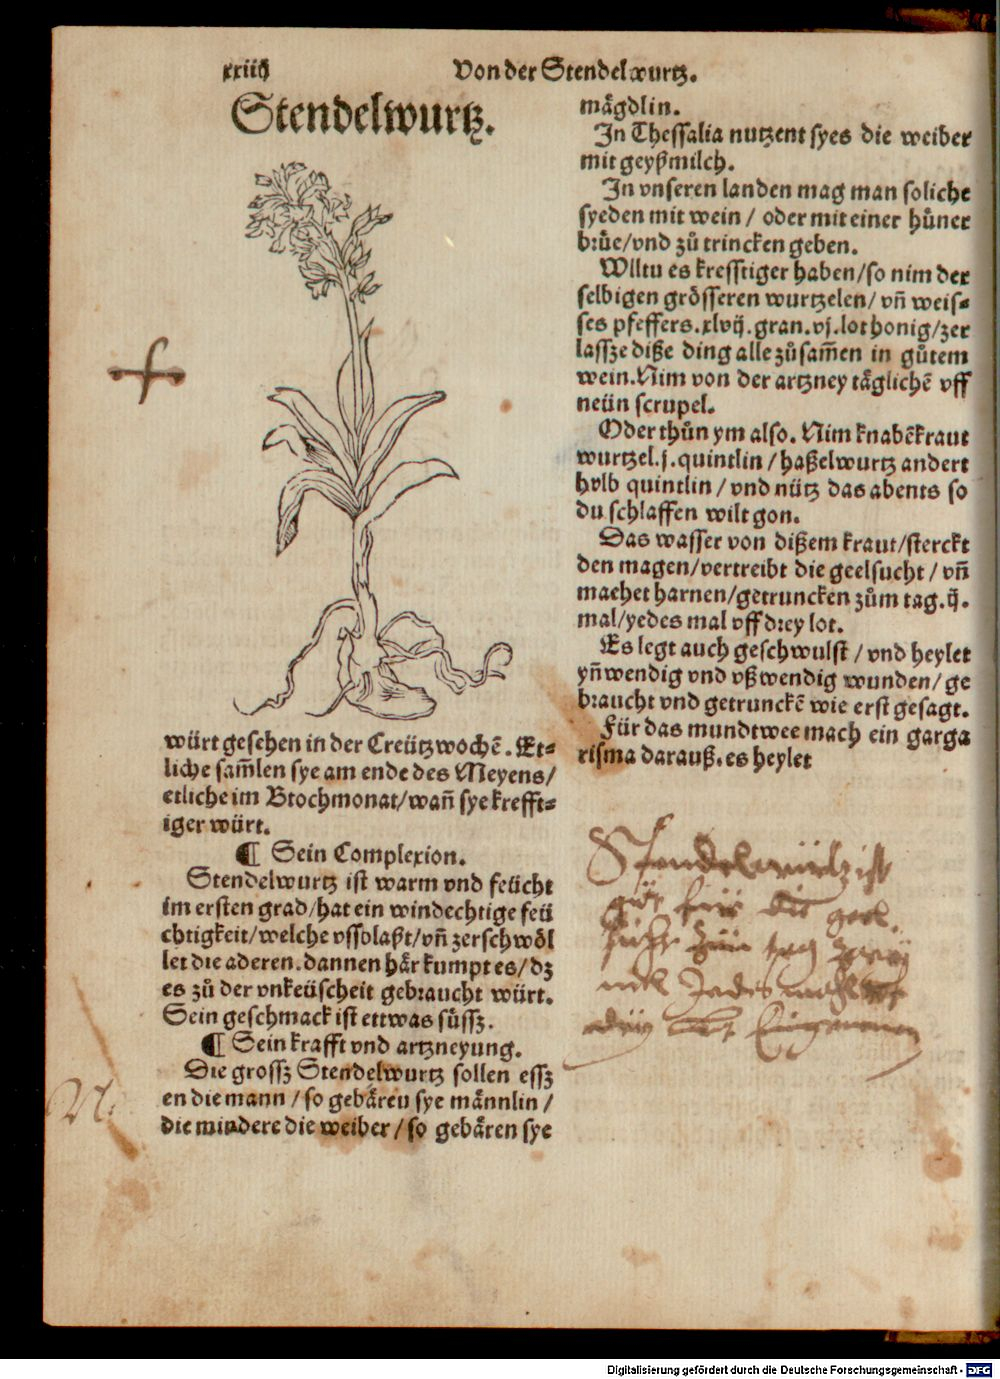 xxiiij
Von der Stendelwurtz.
Stendelwurtz.
würt gesehen in der Creützwochē. Et⸗
liche sam̄len sye am ende des Meyens/
etliche im Brochmonat/wañ sye krefft⸗
iger würt.
¶ Sein Complexion.
Stendelwurtz ist warm vnd feücht
im ersten grad/hat ein windechtige feü
chtigkeit/welche vffolaßt/vñ zerschwöl
let die aderen.dannen här kumpt es/dz
es zů der vnkeüscheit gebraucht würt.
Sein geschmack ist ettwas süssz.
¶ Sein krafft vnd artzneyung.
Die grossz Stendelwurtz sollen essz
en die mann/so gebären sye männlin/
die mindere die weiber/so gebären sye
mägdlin.
In Thessalia nutzent sye die weiber
mit geyßmilch.
In vnseren landen mag man soliche
syeden mit wein/oder mit einer hůner
brůe/vnd zů trincken geben.
Wiltu es krefftiger haben/so nim der
selbigen grösseren wurtzelen/vñ weis⸗
ses pfeffers.xlvij.gran.vj.lot honig/zer
lassze diße ding alle zůsam̄en in gůtem
wein.Nim von der artzney täglichē vff
neün scrupel.
Oder thůn ym also. Nim knabēkraut
wurtzel.j.quintlin/haßelwurtz andert
halb quintlin/vnd nütz das abents so
du schlaffen wilt gon.
Das wasser von dißem kraut/sterckt
den magen/vertreibt die geelsucht/vñ
machet harnen/getruncken zům tag.ij.
mal/yedes mal vff drey lot.
Es legt auch geschwulst/vnd heylet
ynwendig vnd vßwendig wunden/ge
braucht vnd getrunckē wie erst gesagt.
Für das mundtwee mach ein garga
risma darauß.es heylet
Stendelwürtz ist
gůt für die geel
sucht zům tag zwey
mal Jedes mahl vff
drey lot Eingenomen